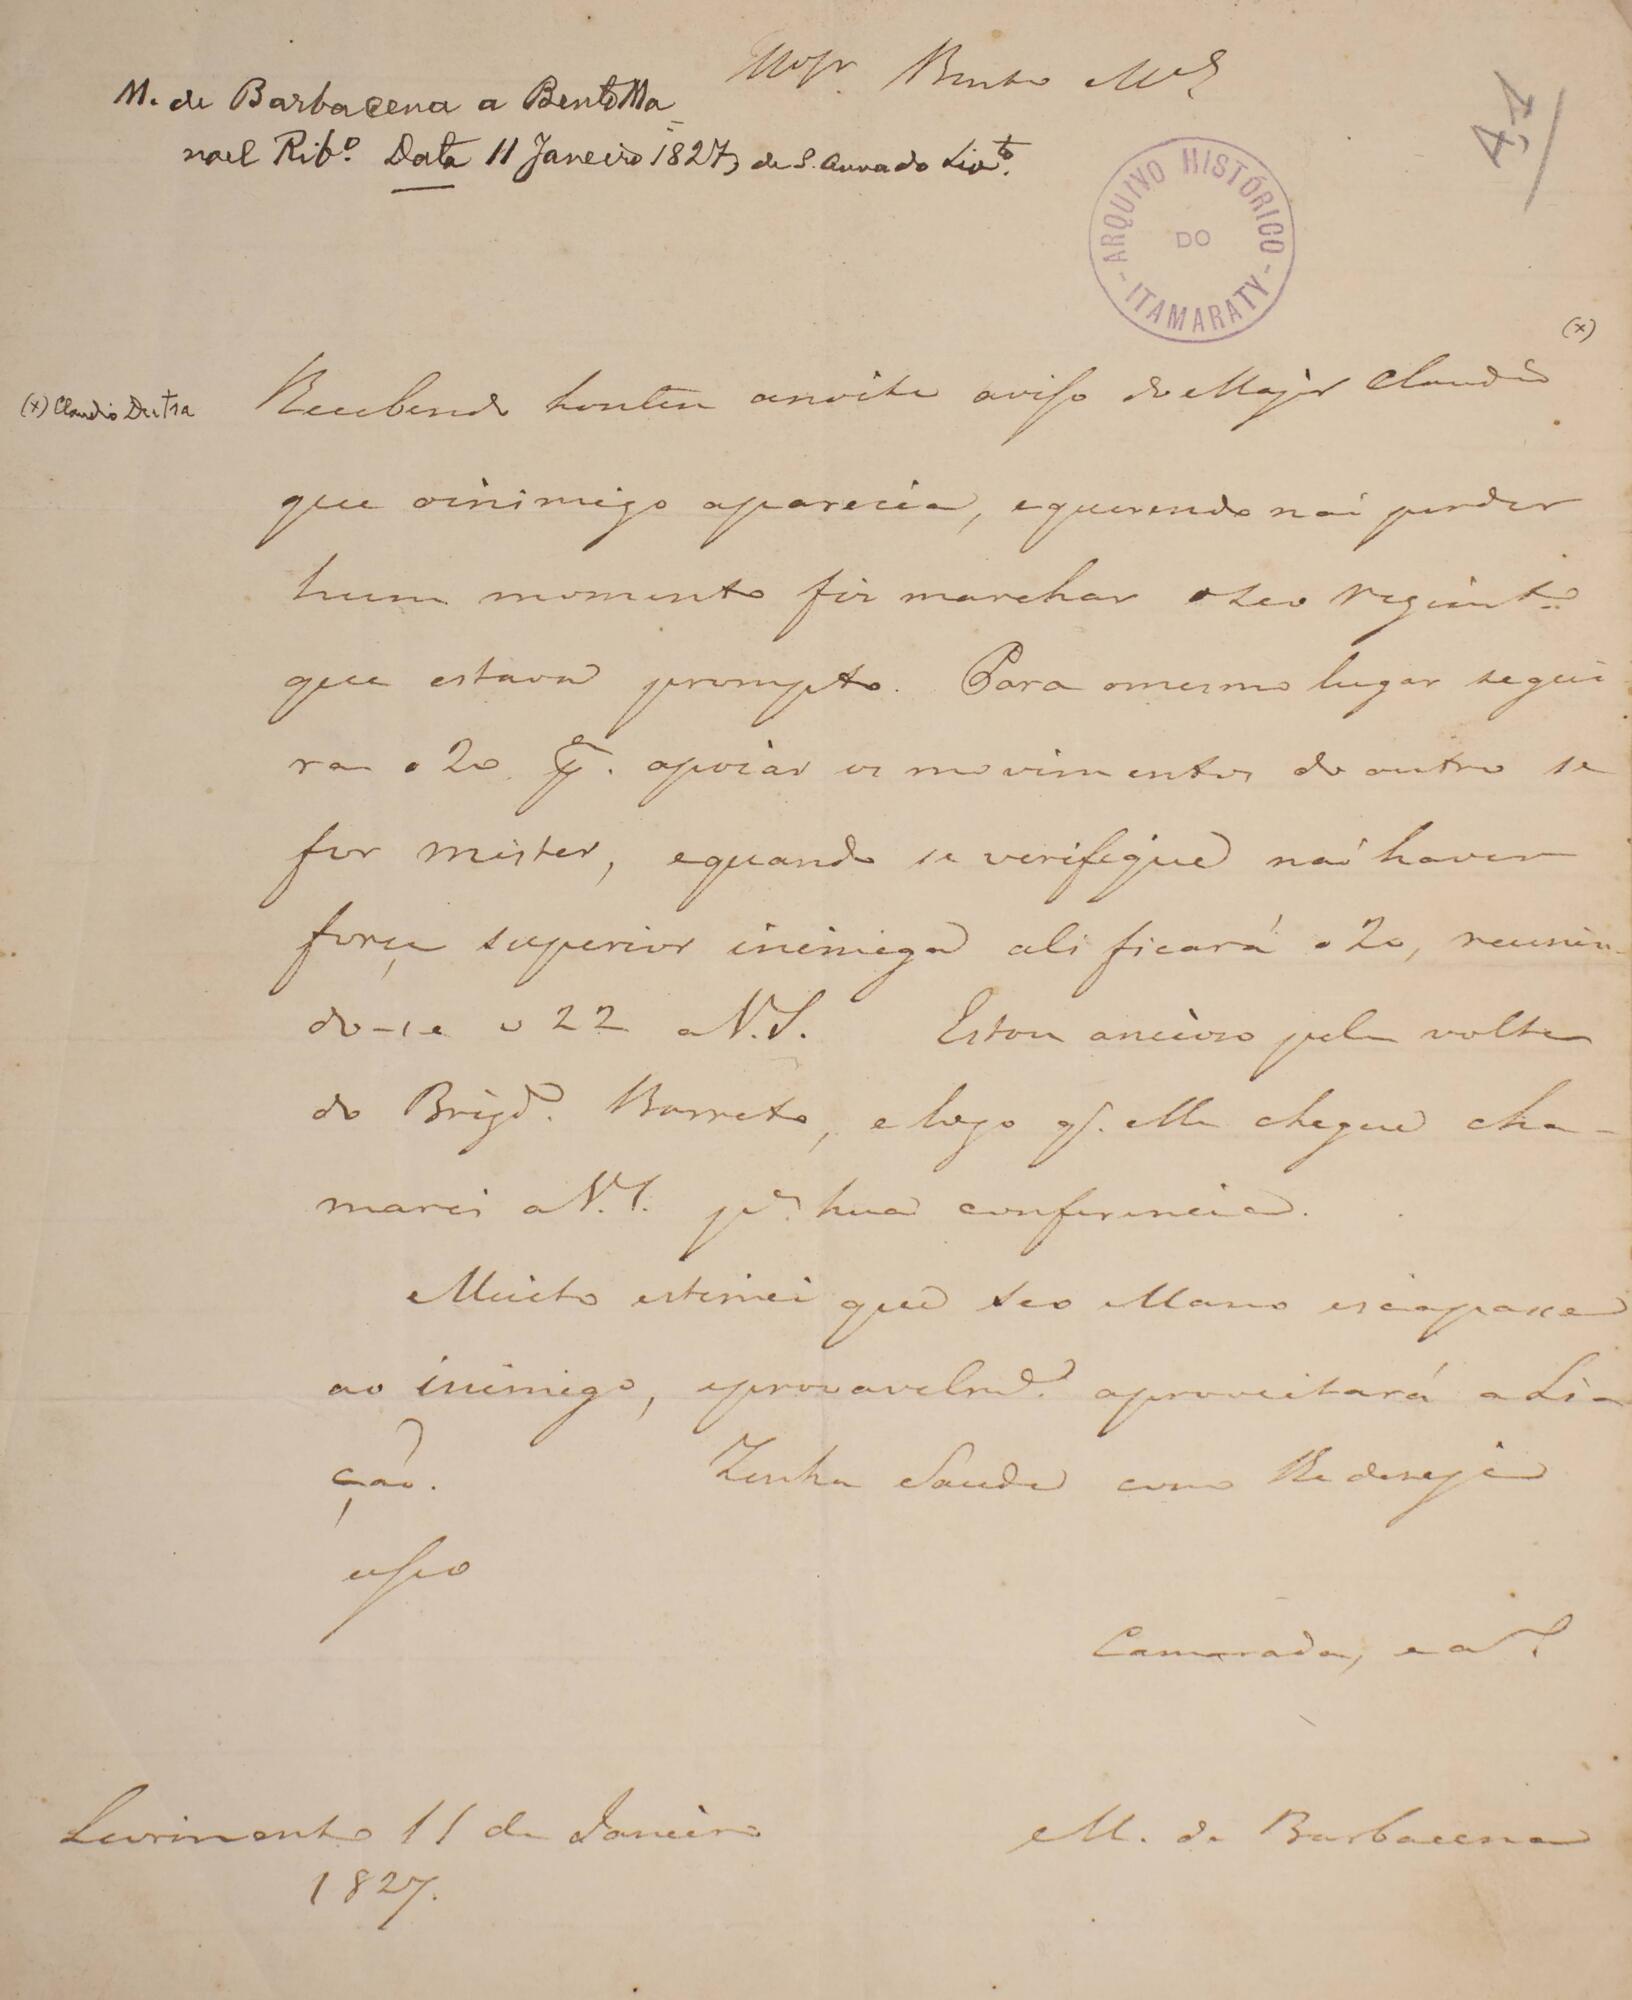 Bento M.el
M. de Barbacena a Bento Ma
noel Rib.º Data 11 Janeiro 1827, de S. Anna do Liv.to
4,1
ARQUIVO HISTÓRICO
DO
ITAMARATY
(x)
(x) Claudio Dutra
Recebendo hontem anoite aviso do Major Claudio
que oinimigo aparecia, equerendo naõ perder
hum momento fiz marchar oseo regimto.
que estava prompto. Para omesmo lugar segui
ra o 20 pª. apoiar os movimentos do outro se
for mister, equando se verifique naõ haver
força superior inimiga ali ficará o 20, reunin-
do-se o 22 a V.S. Estou ancioso pela volta
do Brigdº. Barreto, e logo q. elle chegue cha-
marei a V.S. pª. hua conferencia.
Muito estimei que seo Mano escapasse
ao inimigo, eprovavelmte. aproveitará a Li-
çaõ. Tenha Saude como lhe deseja
Camarada, e
Livrimento 11 de Janeiro
1827.
M. de Barbacena